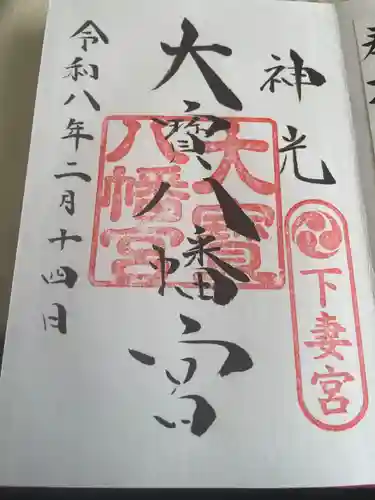 神光
下妻宮
大寳八幡宮
大寳八幡宮
令和八年二月十四日